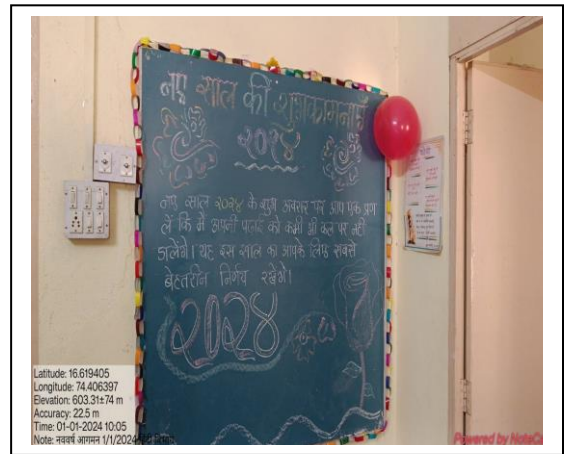 नए साल की शुभकामनाएँ
२०२४
नए साल २०२४ के शुभ अवसर पर आप एक प्रण
लें कि मैं अपनी पढाई को कभी भी कल पर नहीं
डालेंगे। यह इस साल का आपके लिए सबसे
बेहतरीन निर्णय रहेगा।
२०२४
Latitude: 16.619405
Longitude: 74.406397
Elevation: 603.31±74 m
Accuracy: 22.5 m
Time: 01-01-2024 10:05
Note: नववर्ष आगमन 1/1/2024
Powered by NoteCam